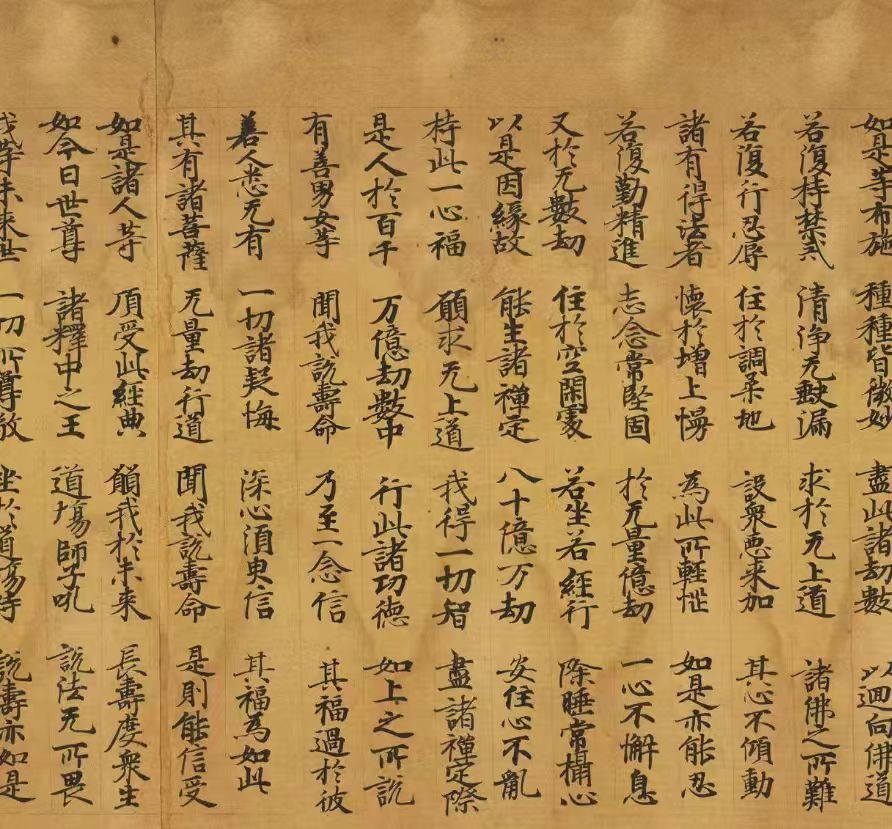 如是等布施 種種皆微妙 盡此諸劫數 以迴向佛道
若復持禁戒 清淨无缺漏 求於无上道 諸佛之所難
若復行忍辱 住於調柔地 設衆惡来加 其心不傾動
諸有得法者 懷於增上慢 為此所輕惱 如是亦能忍
若復勤精進 志念常堅固 於无量億劫 一心不懈息
又於无數劫 住於空閑處 若坐若經行 除睡常攝心
以是因緣故 能生諸禪定 八十億万劫 安住心不亂
持此一心福 願求无上道 我得一切智 盡諸禪定際
是人於百千 万億劫數中 行此諸功德 如上之所說
有善男女等 聞我說壽命 乃至一念信 其福過於彼
善人悉无有 一切諸疑悔 深心須臾信 其福為如此
其有諸菩薩 无量劫行道 聞我說壽命 是則能信受
如是諸人等 頂受此經典 願我於未来 長壽度衆生
如今日世尊 諸釋中之王 道場師子吼 說法无所畏
我等未来世 一切所尊敬 坐於道場時 說壽亦如是